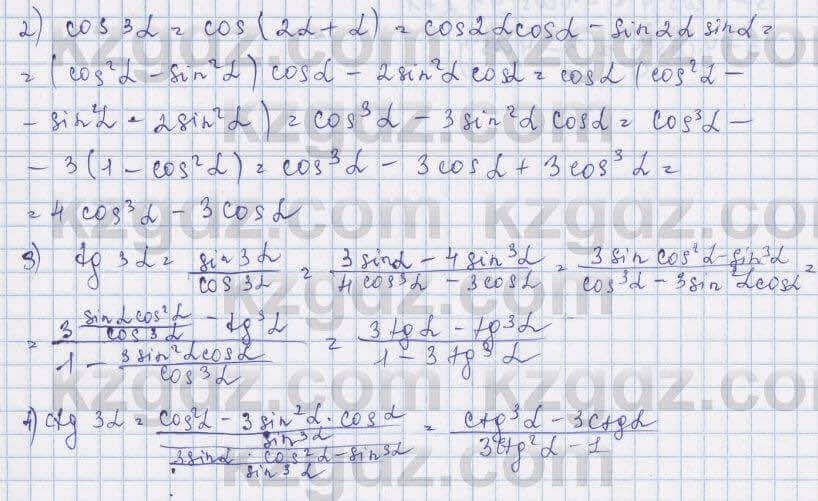 2) cos 3α = cos(2α + α) = cos2α cosα - sin2α sinα =
= (cos²α - sin²α) cosα - 2sin²α cosα = cosα (cos²α -
- sin²α - 2sin²α) = cos³α - 3sin²α cosα = cos³α -
- 3(1 - cos²α) = cos³α - 3cosα + 3cos³α =
= 4 cos³α - 3cosα
3) tg 3α = sin 3α / cos 3α = (3 sinα - 4 sin³α) / (4 cos³α - 3cosα) = (3 sin cos²α - sin³α) / (cos³α - 3sin²α cosα) =
= (3 (sinα cos²α / cos3α) - tg³α) / (1 - (3sin²α cosα / cos³α)) = (3 tgα - tg³α) / (1 - 3 tg³α)
4) ctg 3α = ((cos²α - 3sin²α · cosα) / sin³α) / ((3sinα · cos²α - sin³α) / sin³α) = (ctg³α - 3ctgα) / (3ctg²α - 1)
kzgdz.com